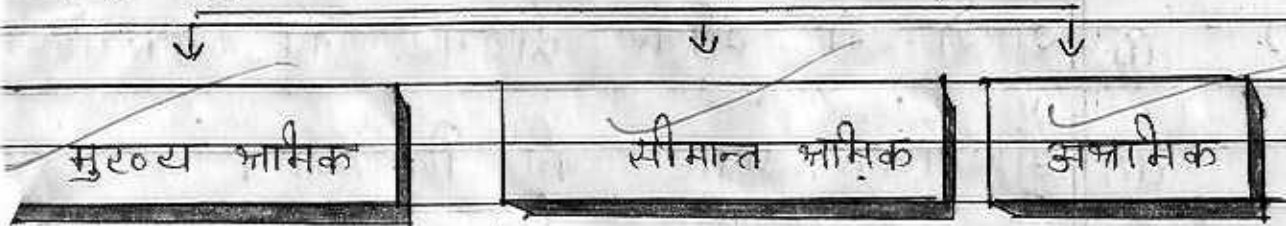 मुख्य श्रमिक सीमान्त श्रमिक अश्रमिक